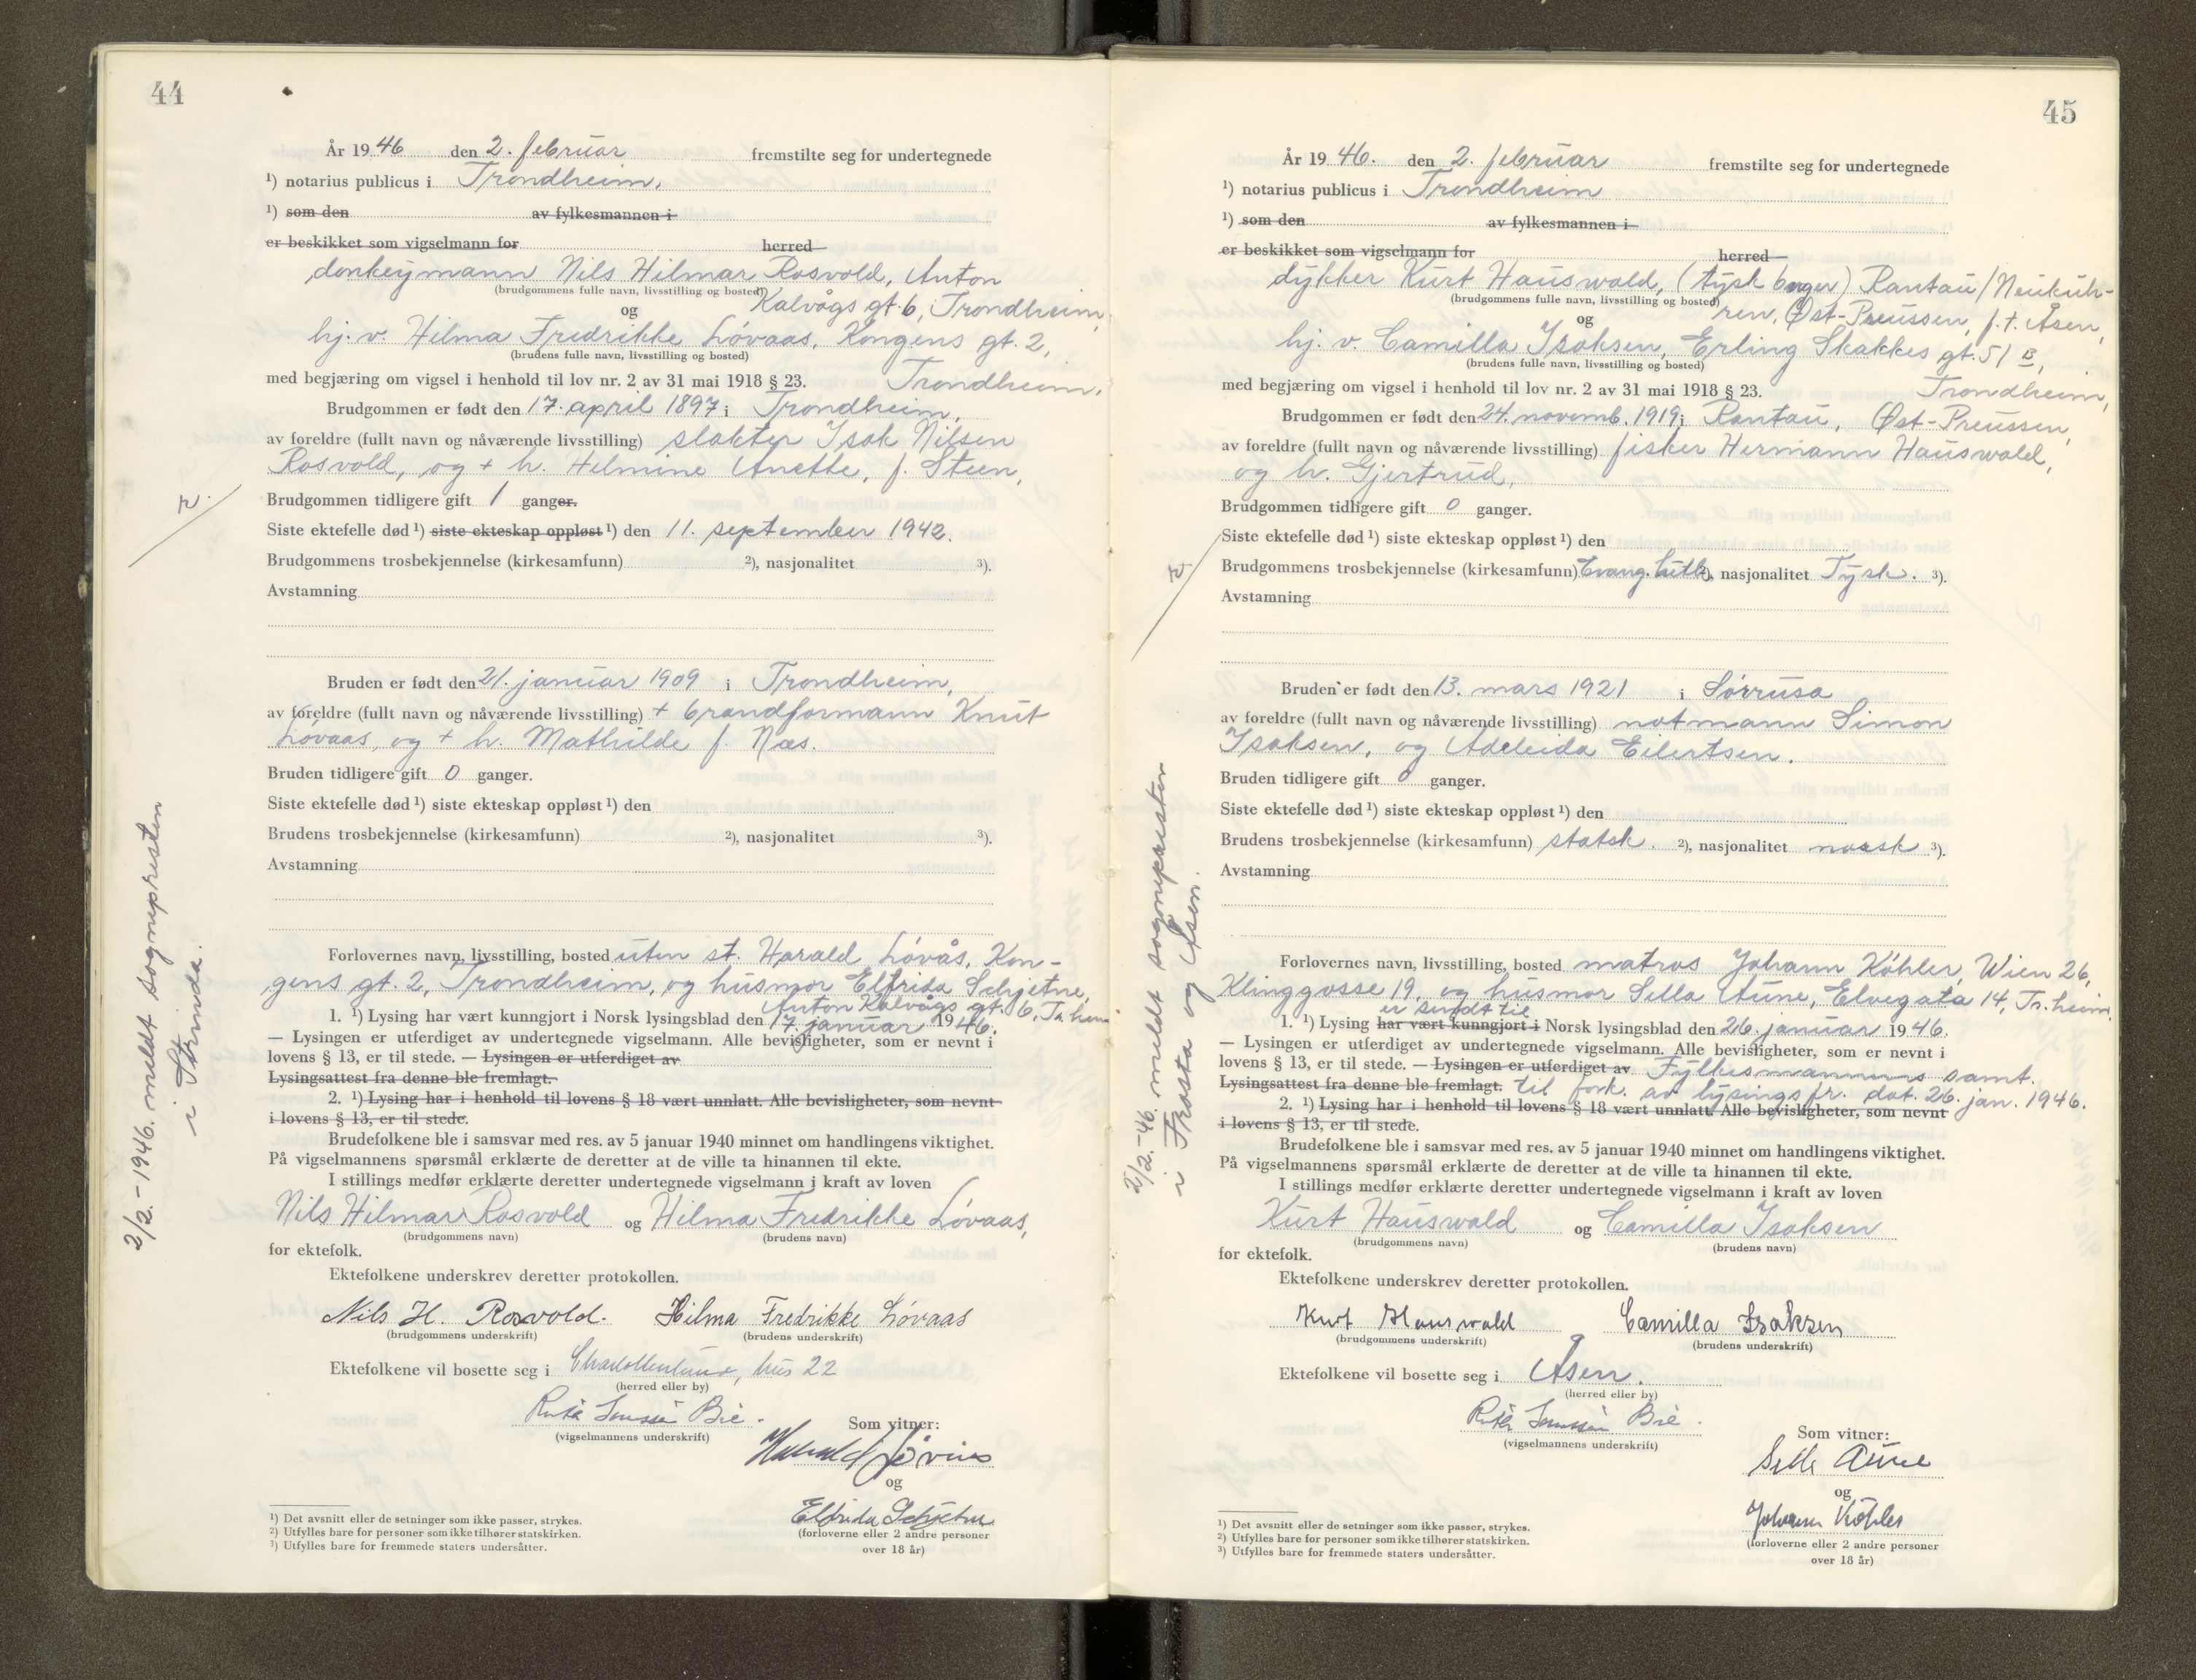 44
År 1946 den 2. februar fremstilte seg for undertegnede
¹) notarius publicus i Trondheim.
¹) som den av fylkesmannen i
er beskikket som vigselmann for herred
donkeymann Nils Hilmar Rosvold, Anton
(brudgommens fulle navn, livsstilling og bosted)
Kalvågs gt. 6, Trondheim,
og
hj. v. Hilma Fredrikke Lóvaas, Kongens gt. 2,
(brudens fulle navn, livsstilling og bosted)
med begjæring om vigsel i henhold til lov nr. 2 av 31 mai 1918 § 23. Trondheim.
Brudgommen er født den 17. april 1897 i Trondheim,
av foreldre (fullt navn og nåværende livsstilling) slakter Isak Nilsen
Rosvold, og + h. Helmine Anette, f. Steen,
Brudgommen tidligere gift 1 ganger.
Siste ektefelle død ¹) siste ekteskap oppløst ¹) den 11. september 1942.
Brudgommens trosbekjennelse (kirkesamfunn) ²), nasjonalitet ³).
Avstamning
Bruden er født den 21. januar 1909 i Trondheim,
av foreldre (fullt navn og nåværende livsstilling) + brandformann Knut
Lóvaas, og + h. Mathilde f. Næs.
Bruden tidligere gift 0 ganger.
Siste ektefelle død ¹) siste ekteskap oppløst ¹) den
Brudens trosbekjennelse (kirkesamfunn) ²), nasjonalitet ³).
Avstamning
Forlovernes navn, livsstilling, bosted uten st. Harald Lóvås, Kon-
gens gt. 2, Trondheim, og husmor Elfrida Schjetne,
Anton Kalvågs gt. 6, Tr.heim
1. ¹) Lysing har vært kunngjort i Norsk lysingsblad den 17. januar 1946.
— Lysingen er utferdiget av undertegnede vigselmann. Alle bevisligheter, som er nevnt i
lovens § 13, er til stede. — Lysingen er utferdiget av
Lysingsattest fra denne ble fremlagt.
2. ¹) Lysing har i henhold til lovens § 18 vært unnlatt. Alle bevisligheter, som nevnt
i lovens § 13, er til stede.
Brudefolkene ble i samsvar med res. av 5 januar 1940 minnet om handlingens viktighet.
På vigselmannens spørsmål erklærte de deretter at de ville ta hinannen til ekte.
I stillings medfør erklærte deretter undertegnede vigselmann i kraft av loven
Nils Hilmar Rosvold og Hilma Fredrikke Lóvaas,
(brudgommens navn) (brudens navn)
for ektefolk.
Ektefolkene underskrev deretter protokollen.
Nils H. Rosvold. Hilma Fredrikke Lóvaas
(brudgommens underskrift) (brudens underskrift)
Ektefolkene vil bosette seg i Charlottenlund, hus 22
(herred eller by)
Bie.
(vigselmannens underskrift)
Som vitner:
Harald
og
Elfrida Schjetne
(forloverne eller 2 andre personer
over 18 år)
¹) Det avsnitt eller de setninger som ikke passer, strykes.
²) Utfylles bare for personer som ikke tilhører statskirken.
³) Utfylles bare for fremmede staters undersåtter.
2/2.-1946. meldt sognepresten
i Strinda.
45
År 1946. den 2. februar fremstilte seg for undertegnede
¹) notarius publicus i Trondheim
¹) som den av fylkesmannen i
er beskikket som vigselmann for herred
dykker Kurt Hauswald, (tysk borger) Rantau/Neukuh-
(brudgommens fulle navn, livsstilling og bosted)
ren, Øst-Preussen, f.t. Åsen,
og
hj. v. Camilla Isaksen, Erling Skakkes gt. 51 B,
(brudens fulle navn, livsstilling og bosted)
med begjæring om vigsel i henhold til lov nr. 2 av 31 mai 1918 § 23. Trondheim,
Brudgommen er født den 24. novemb. 1919 i Rantau, Øst-Preussen,
av foreldre (fullt navn og nåværende livsstilling) fisker Hermann Hauswald,
og h. Gjertrud,
Brudgommen tidligere gift 0 ganger.
Siste ektefelle død ¹) siste ekteskap oppløst ¹) den
Brudgommens trosbekjennelse (kirkesamfunn) Evang. luth. ²), nasjonalitet Tysk. ³).
Avstamning
Bruden er født den 13. mars 1921 i Sórrusa
av foreldre (fullt navn og nåværende livsstilling) notmann Simon
Isaksen, og Adeleida Eilertsen.
Bruden tidligere gift 0 ganger.
Siste ektefelle død ¹) siste ekteskap oppløst ¹) den
Brudens trosbekjennelse (kirkesamfunn) statsk. ²), nasjonalitet norsk ³).
Avstamning
Forlovernes navn, livsstilling, bosted matros Johann Kóhler, Wien 26,
Klinggasse 19, og husmor Sella Aune, Elvegata 14, Tr.heim.
er sendt til
1. ¹) Lysing har vært kunngjort i Norsk lysingsblad den 26. januar 1946.
— Lysingen er utferdiget av undertegnede vigselmann. Alle bevisligheter, som er nevnt i
lovens § 13, er til stede. — Lysingen er utferdiget av Fylkesmannens samt.
Lysingsattest fra denne ble fremlagt. til fork. av lysingsfr. dat. 26. jan. 1946.
2. ¹) Lysing har i henhold til lovens § 18 vært unnlatt. Alle bevisligheter, som nevnt
i lovens § 13, er til stede.
Brudefolkene ble i samsvar med res. av 5 januar 1940 minnet om handlingens viktighet.
På vigselmannens spørsmål erklærte de deretter at de ville ta hinannen til ekte.
I stillings medfør erklærte deretter undertegnede vigselmann i kraft av loven
Kurt Hauswald og Camilla Isaksen
(brudgommens navn) (brudens navn)
for ektefolk.
Ektefolkene underskrev deretter protokollen.
Kurt Hauswald Camilla Isaksen
(brudgommens underskrift) (brudens underskrift)
Ektefolkene vil bosette seg i Åsen.
(herred eller by)
Bie.
(vigselmannens underskrift)
Som vitner:
Sella Aune
og
Johann Köhler
(forloverne eller 2 andre personer
over 18 år)
¹) Det avsnitt eller de setninger som ikke passer, strykes.
²) Utfylles bare for personer som ikke tilhører statskirken.
³) Utfylles bare for fremmede staters undersåtter.
2/2.-46. meldt sognepresten
i Frosta og Åsen.